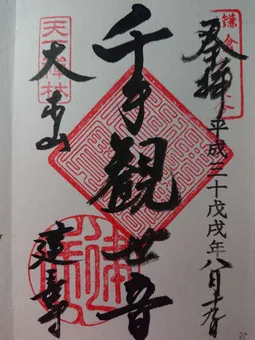 奉拝
平成三十戊戌年八月
鎌倉
千手観世音
天下禅林
大本山
建長寺